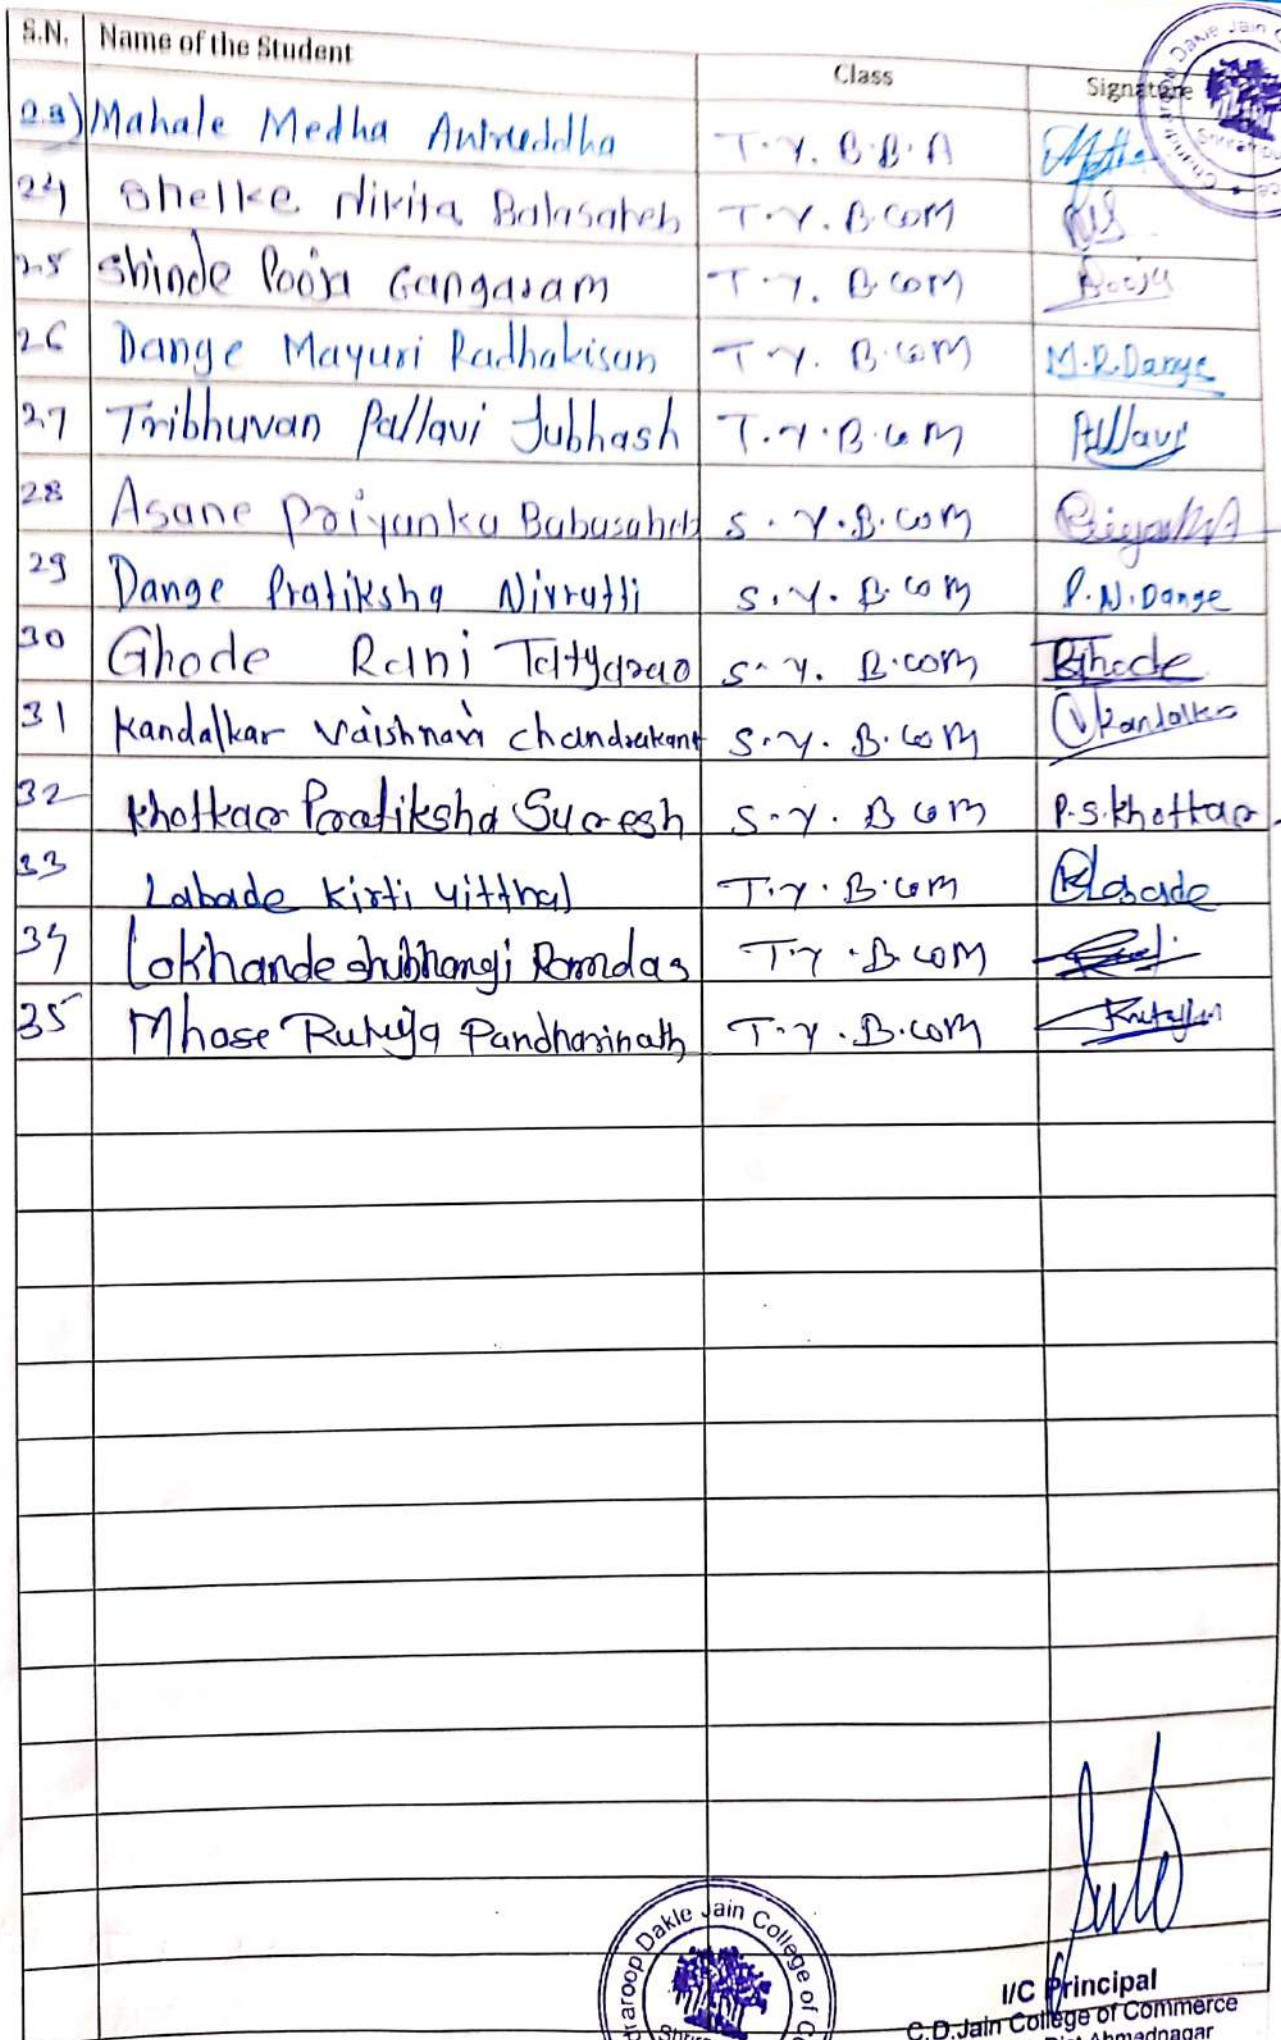 S.N. Name of the Student Class Signature
23) Mahale Medha Aniruddha T.Y. B.B.A
24 Shelke Nikita Balasaheb T.Y. B.COM
25 Shinde Pooja Gangaram T.Y. B.COM Pooja
26 Dange Mayuri Radhakisan T.Y. B.COM M.R.Dange
27 Tribhuvan Pallavi Subhash T.Y.B.COM Pallavi
28 Asane Priyanka Babasaheb S.Y.B.COM
29 Dange Pratiksha Nivrutti S.Y. B.COM P.N.Dange
30 Ghode Rani Tatyarao S.Y. B.COM RGhode
31 Kandalkar Vaishnavi Chandrakant S.Y. B.COM VKandalkar
32 Khotkar Pratiksha Suresh S.Y. B COM P.S.Khotkar
33 Labade Kirti Vitthal T.Y. B.COM KLabade
34 Lokhande Shubhangi Ramdas T.Y.B.COM
35 Mhase Rutuja Pandharinath T.Y.B.COM
Dakle Jain College of
I/C Principal
C.D.Jain College of Commerce
Dist Ahmednagar